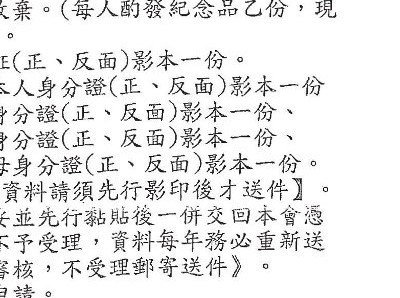 放棄。(每人酌發紀念品乙份，現
。
証(正、反面)影本一份。
本人身分證(正、反面)影本一份
身分證(正、反面)影本一份、
身分證(正、反面)影本一份、
母身分證(正、反面)影本一份。
資料請須先行影印後才送件】。
妥並先行黏貼後一併交回本會憑
不予受理，資料每年務必重新送
審核，不受理郵寄送件》。
申請。